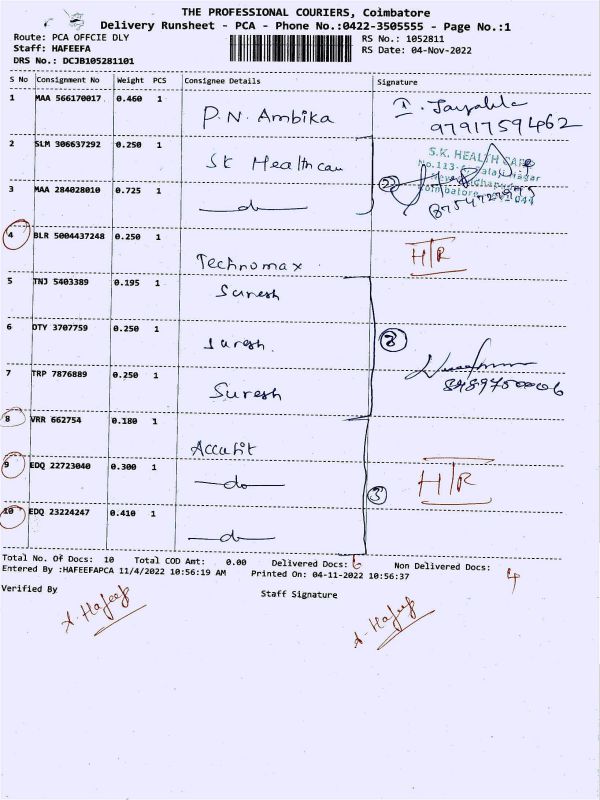 THE PROFESSIONAL COURIERS, Coimbatore
Delivery Runsheet - PCA - Phone No.:0422-3505555 - Page No.:1
Route: PCA OFFCIE DLY
RS No.: 1052811
Staff: HAFEEFA
RS Date: 04-Nov-2022
DRS No.: DCJB105281101
S No Consignment No Weight PCS Consignee Details Signature
1 MAA 566170017 0.460 1 P.N. Ambika
97917594462
2 SLM 306637292 0.250 1 SK Health cau
S.K. HEALTH CARE
3 MAA 284028010 0.725 1 do
2
4 BLR 5004437248 0.250 1 Technomax H/R
5 TNJ 5403389 0.195 1 Suresh
6 OTY 3707759 0.250 1 Suresh
3
7 TRP 7876889 0.250 1 Suresh
8 VRR 662754 0.180 1 Accufit
9 EDQ 22723040 0.300 1 do H/R
3
10 EDQ 23224247 0.410 1 do
Total No. Of Docs: 10 Total COD Amt: 0.00 Delivered Docs: 6 Non Delivered Docs: 4
Entered By :HAFEEFAPCA 11/4/2022 10:56:19 AM Printed On: 04-11-2022 10:56:37
Verified By Staff Signature
A. Hafeef A. Hafeef